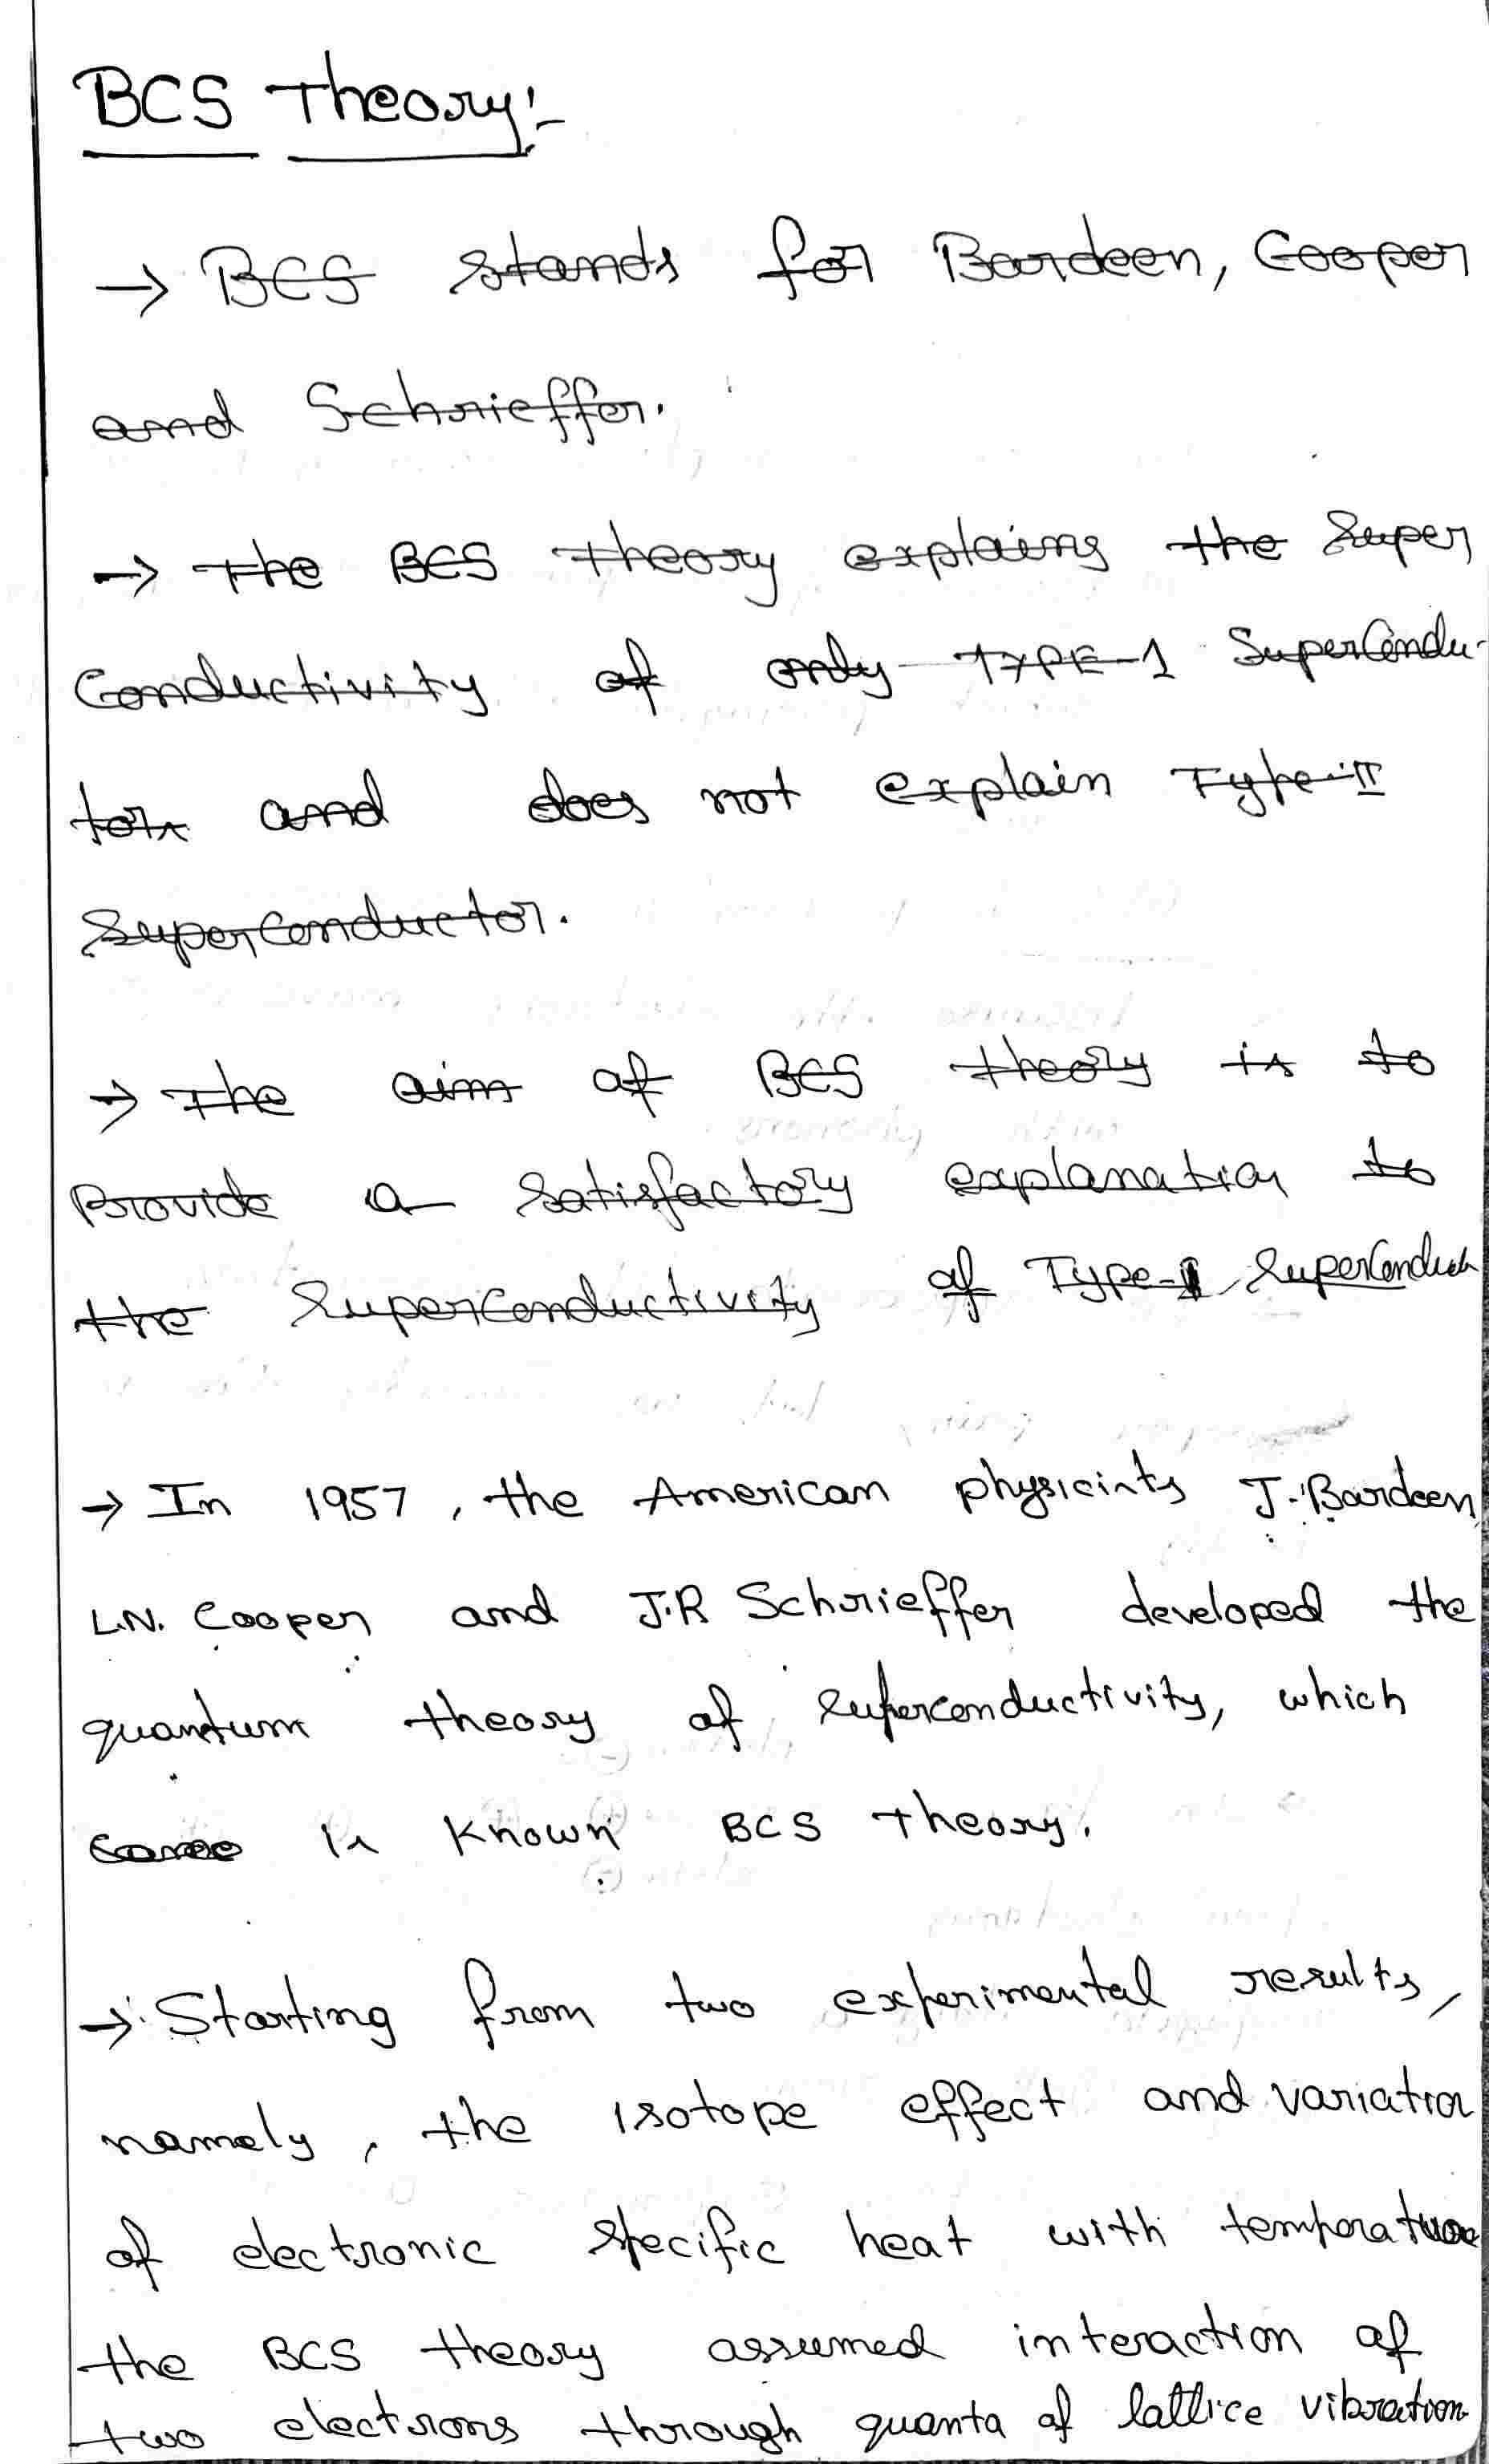 BCS Theory:-
→ BCS stands for Bardeen, Cooper
and Schrieffer.
→ the BCS theory explains the Super
Conductivity of only TYPE-1 SuperCondu-
tor and does not explain Type-II
SuperConductor.
→ The aim of BCS theory is to
Provide a Satisfactory explanation to
the SuperConductivity of Type-I SuperConduct
→ In 1957, the American physicists J. Bardeen
L.N. Cooper and J.R Schrieffer developed the
quantum theory of superconductivity, which
is known BCS theory.
→ Starting from two experimental results,
namely, the isotope effect and variation
of electronic specific heat with temperature
the BCS theory assumed interaction of
two electrons through quanta of lattice vibration